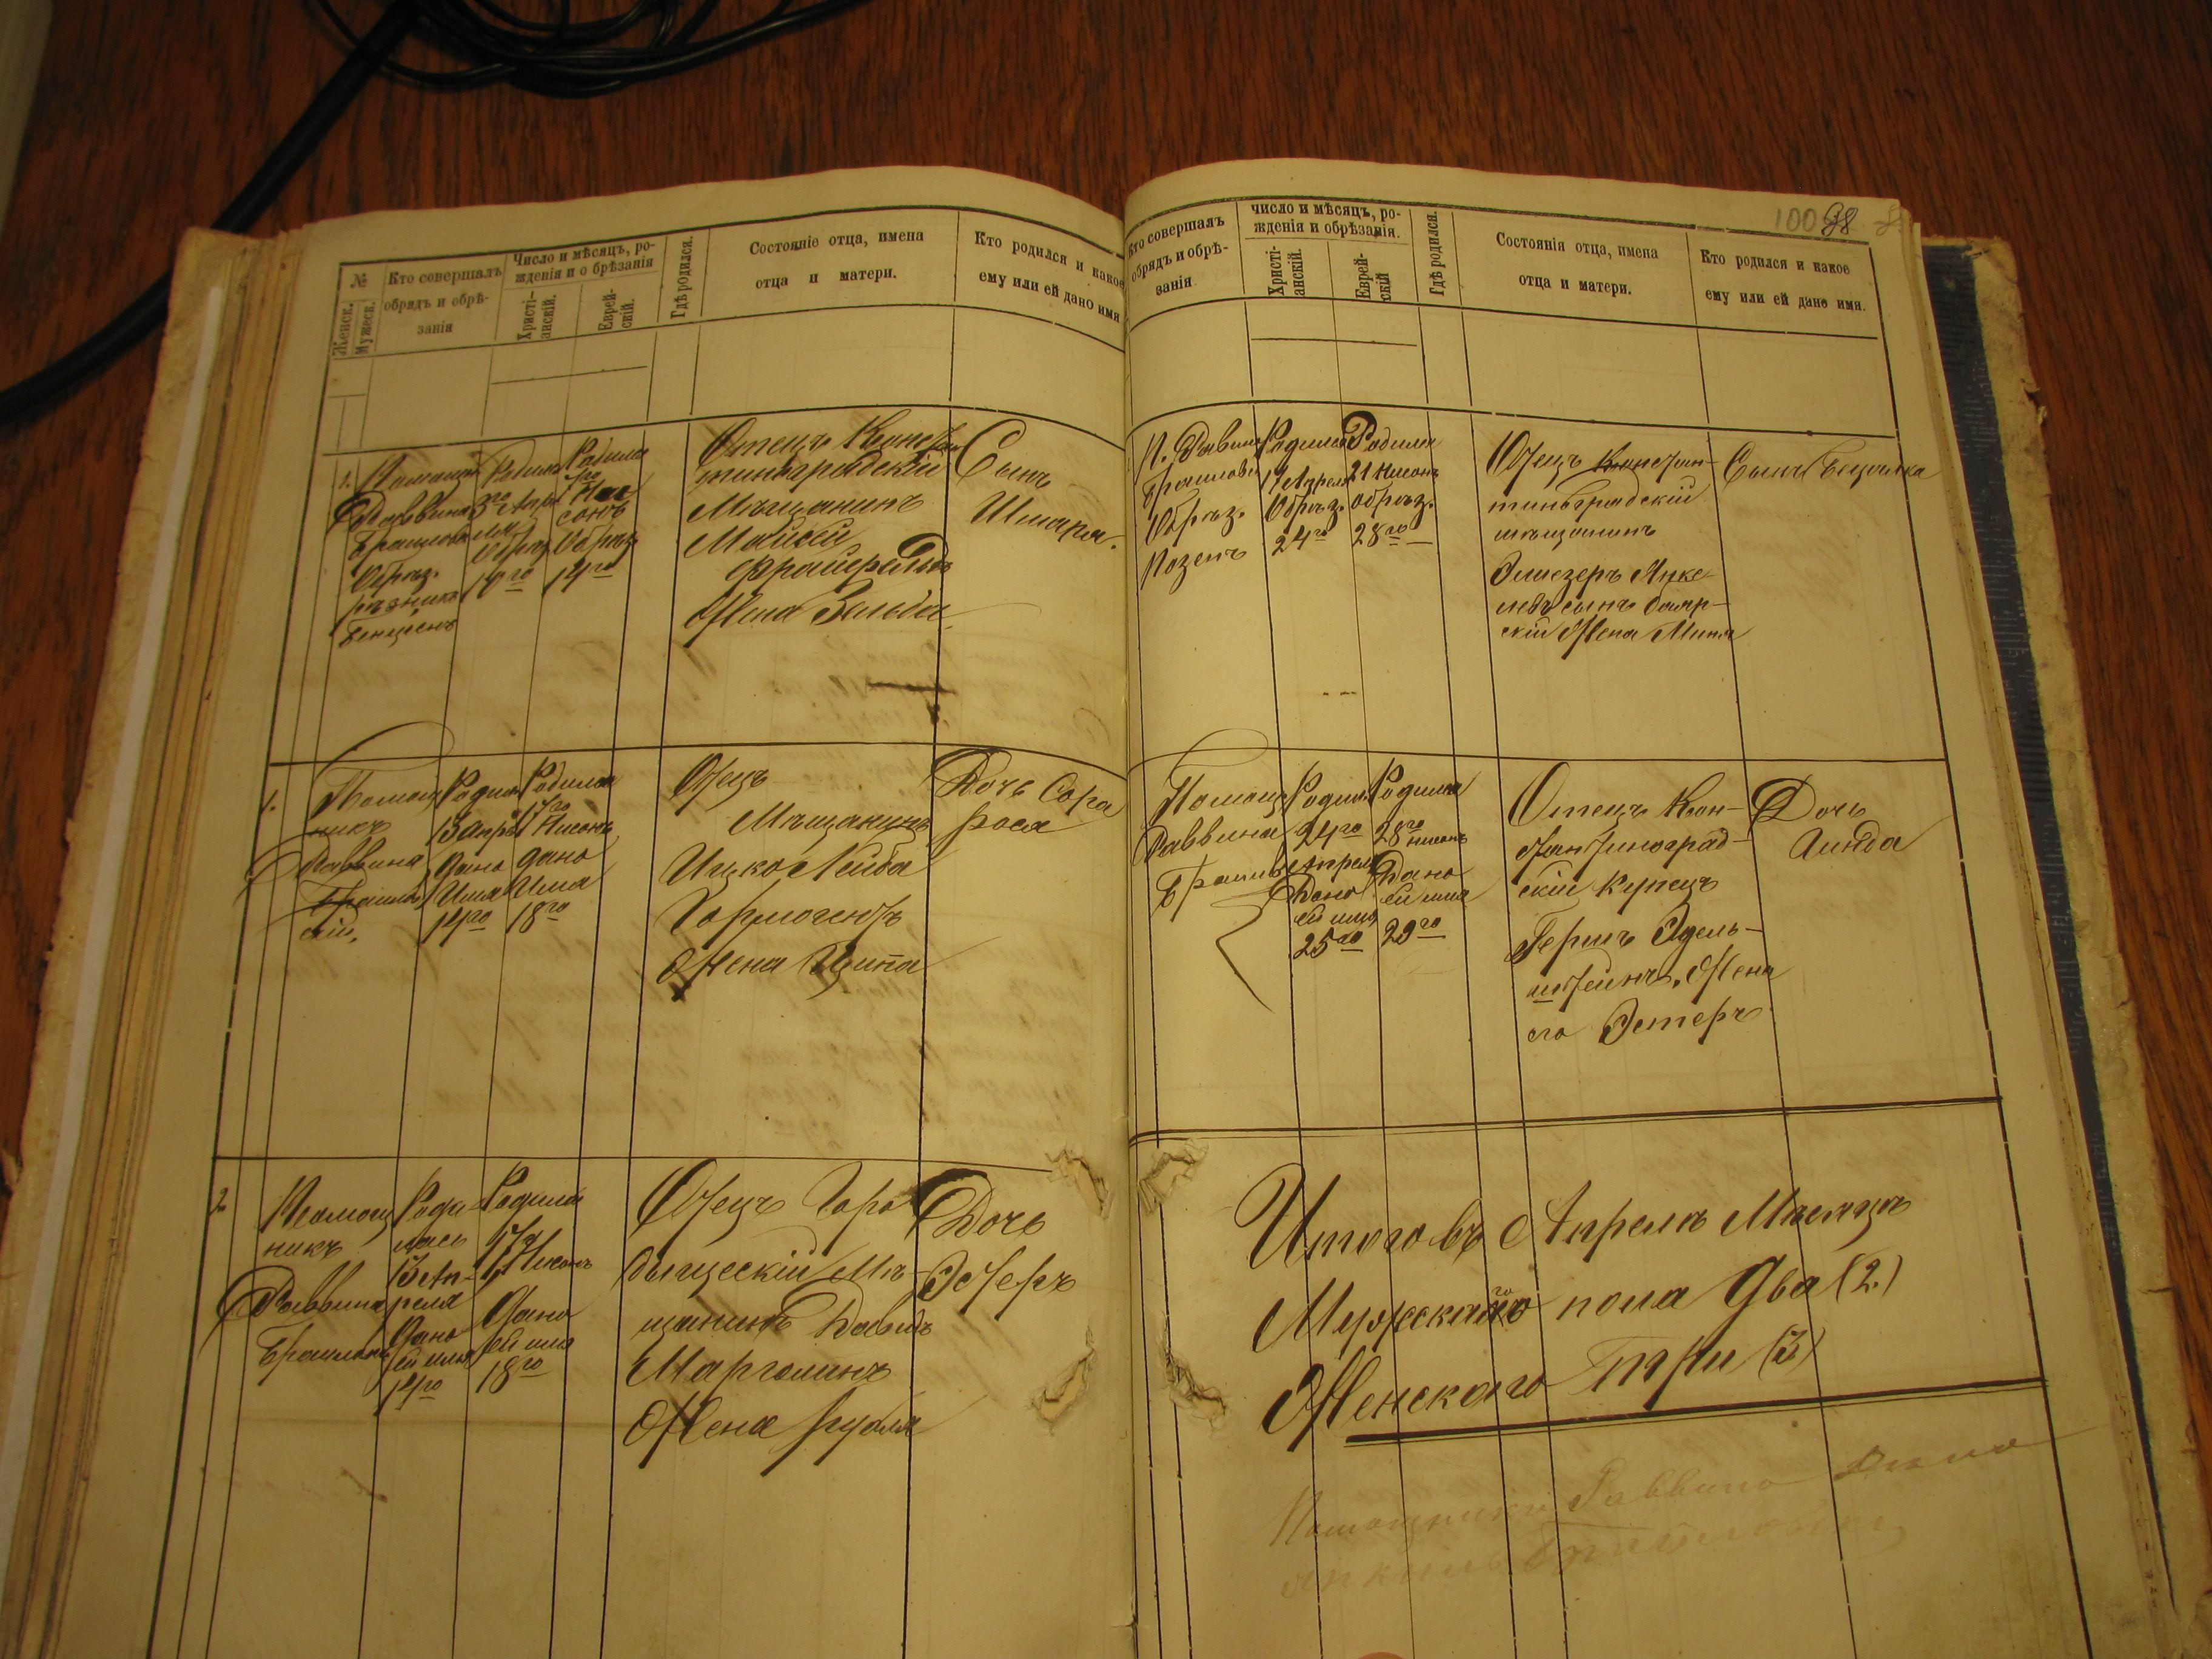 №
Женск.
Мужеск.
Кто совершалъ
обрядъ и обрѣ-
занія
Число и мѣсяцъ, ро-
жденія и о брѣзанія
Христі-
анскій.
Еврей-
скій.
Гдѣ родился.
Состояніе отца, имена
отца и матери.
Кто родился и какое
ему или ей дано имя
1.
Раввина
Обрѣз.
10го
14го
Отецъ Констан
тиноградскій
Мѣщанинъ
Жена Зельда
Сынъ
Шмаря.
1.
Помощ
никъ
Раввина
Родил
13 апрѣ
дано
Имя
14го
Родилась
17го
Нисонъ
дано
Имя
18го
Отецъ
Мѣщанинъ
Ицко Лейба
Жена Ципа
Дочь Сора
роса
2
Помощ
никъ
Раввина
Роди
лась
13 Ап-
реля
дано
ей имя
14го
Родила
17го
Нисонъ
дано
ей имя
18го
Отецъ Горо
дыщескій Мѣ-
щанинъ Давидъ
Марголинъ
Жена рухля
Дочь
Эстеръ
100 98
Кто совершалъ
обрядъ и обрѣ-
занія
число и мѣсяцъ, ро-
жденія и обрѣзанія.
Христі-
анскій.
Еврей-
скій
Гдѣ родился.
Состоянія отца, имена
отца и матери.
Кто родился и какое
ему или ей дано имя.
П. Раввина
Обрѣз.
Розенъ
Родился
17 Апреля
Обрѣз.
24го
Родился
21 Нисонъ
обрѣз.
28го
Отецъ Констан-
тиноградскій
мѣщанинъ
Элиезеръ Янке-
левъ сынъ Бояр-
скій Жена Миня
Сынъ
Помощ
Раввина
Родил
24го
Апреля
Дано
ей имя
25го
Родила
28го
нисонъ
Дано
ей имя
29го
Отецъ Кон-
стантиноград-
скій Купецъ
Гершъ Эдель-
штейнъ. Жена
его Эстеръ
Дочь
Итого въ Апреля Месяца
Мужскаго пола Два (2.)
Женскаго три (3)
Помощникъ Раввина